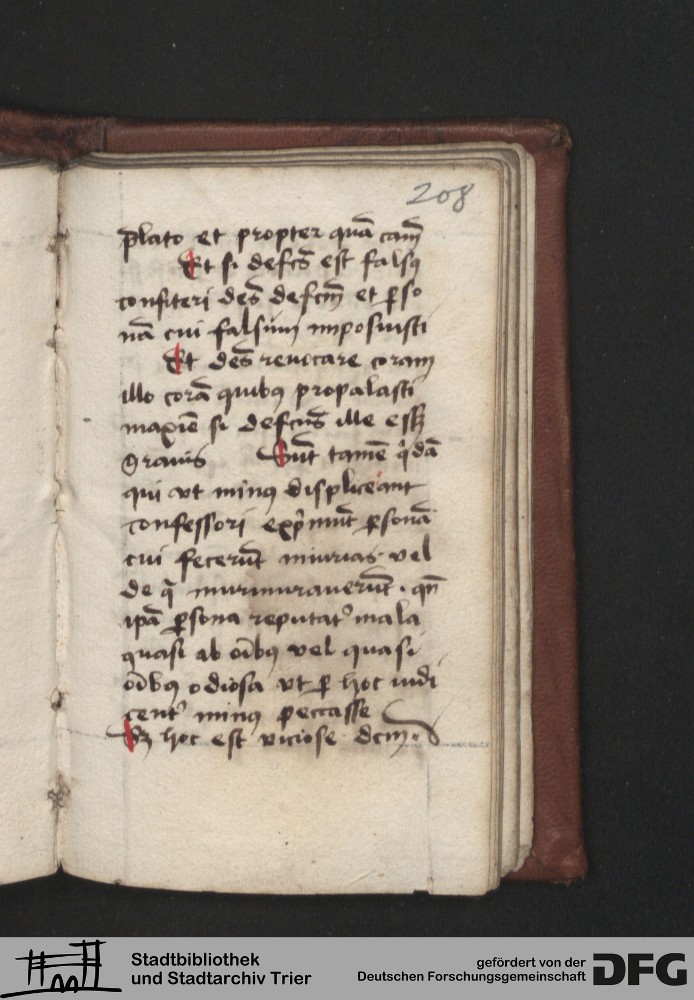 208
p̄lato et propter quā cām
Et si defcs̄ est falsꝰ
confiteri des̄ defcm̄ et ꝑso
nā cui falsum imposuisti
Et des̄ reuocare coram
illo corā quibꝰ propalasti
maxīe si defcūs ille esꝫ
grauis Sūt tamē q̄dā
qui vt minꝰ displiceant
confessori exp̄mūt ꝑsonā
cui fecerūt iniurias vel
de q̄ murmurauerūt. qn̄
ipā ꝑsona reputatᷣ mala
quasi ab oībꝰ vel quasi
oībꝰ odiosa vt ꝑ hoc iudi
centᷣ minꝰ peccasse
Sꝫ hoc est viciose dcm̄.
Stadtbibliothek
und Stadtarchiv Trier
gefördert von der
Deutschen Forschungsgemeinschaft
DFG